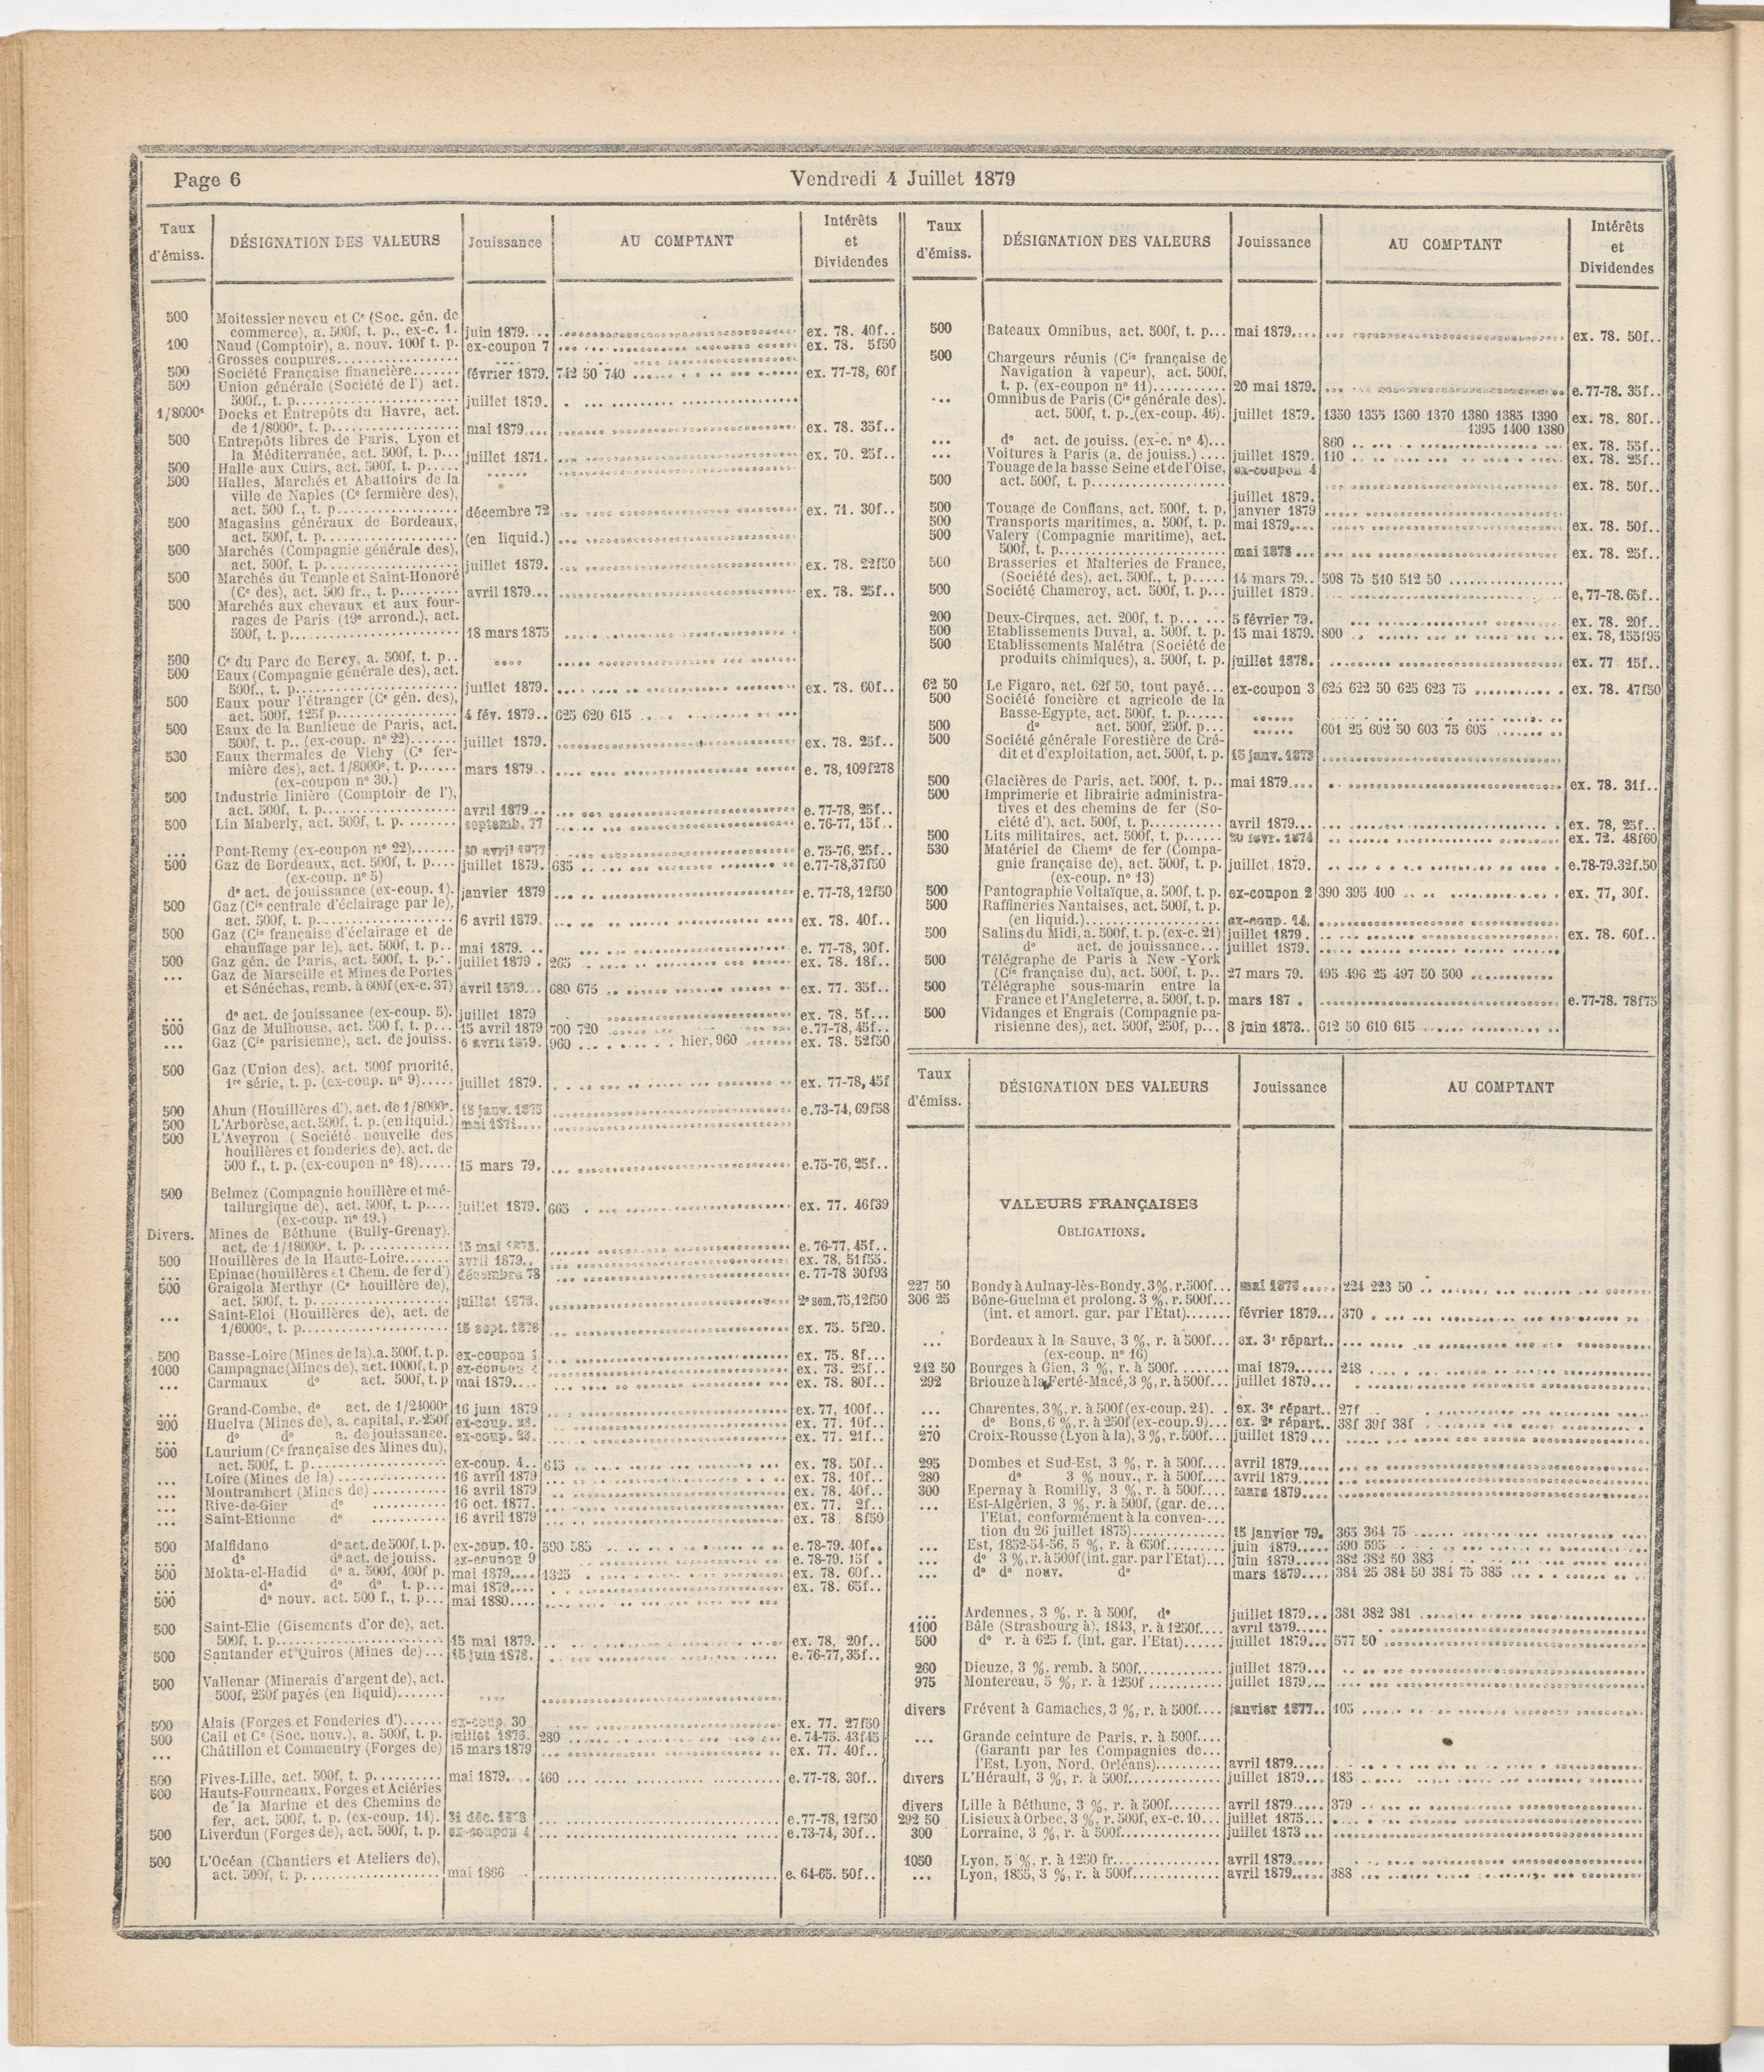 Page 6
Vendredi 4 Juillet 1879
Taux d'émiss.
DÉSIGNATION DES VALEURS
Jouissance
AU COMPTANT
Intérêts et Dividendes
500 Moitessier neveu et Ce (Soc. gén. de
commerce), a. 500f, t. p., ex-c. 1. juin 1879.... ex. 78. 40f..
100 Naud (Comptoir), a. nouv. 100f t. p. ex-coupon 7 ex. 78. 5f50
Grosses coupures
500 Société Française financière....... février 1879. 742 50 740 ex. 77-78, 60f
500 Union générale (Société de l') act.
500f., t. p. juillet 1879.
1/8000e Docks et Entrepôts du Havre, act.
de 1/8000e, t. p. mai 1879.... ex. 78. 35f..
500 Entrepôts libres de Paris, Lyon et
la Méditerranée, act. 500f, t. p... juillet 1871. ex. 70. 25f..
500 Halle aux Cuirs, act. 500f, t. p.....
500 Halles, Marchés et Abattoirs de la
ville de Naples (Ce fermière des),
act. 500 f., t. p. décembre 72 ex. 71. 30f..
500 Magasins généraux de Bordeaux,
act. 500f, t. p. (en liquid.)
500 Marchés (Compagnie générale des),
act. 500f, t. p. juillet 1879. ex. 78. 22f50
500 Marchés du Temple et Saint-Honoré
(Ce des), act. 500 fr., t. p. avril 1879... ex. 78. 25f..
500 Marchés aux chevaux et aux four-
rages de Paris (19e arrond.), act.
500f, t. p. 18 mars 1875
500 Ce du Parc de Bercy, a. 500f, t. p..
500 Eaux (Compagnie générale des), act.
500f., t. p. juillet 1879. ex. 78. 60f..
500 Eaux pour l'étranger (Ce gén. des),
act. 500f, 125f p. 4 fév. 1879.. 625 620 615
500 Eaux de la Banlieue de Paris, act.
500f, t. p., (ex-coup. no 22) juillet 1879. ex. 78. 25f..
530 Eaux thermales de Vichy (Ce fer-
mière des), act. 1/8000e, t. p. mars 1879 e. 78, 109f278
(ex-coupon no 30.)
500 Industrie linière (Comptoir de l'),
act. 500f, t. p. avril 1879 e. 77-78, 25f..
500 Lin Maberly, act. 500f, t. p. septemb. 77 e. 76-77, 15f..
... Pont-Remy (ex-coupon no 22) 30 avril 1877 e. 75-76, 25f..
500 Gaz de Bordeaux, act. 500f, t. p.... juillet 1879. 635 e.77-78,37f50
(ex-coup. no 5)
do act. de jouissance (ex-coup. 1). janvier 1879 e. 77-78, 12f50
500 Gaz (Cie centrale d'éclairage par le),
act. 500f, t. p. 6 avril 1879. ex. 78. 40f..
500 Gaz (Cie française d'éclairage et de
chauffage par le), act. 500f, t. p.. mai 1879. e. 77-78, 30f.
500 Gaz gén. de Paris, act. 500f, t. p... juillet 1879 . 265 ex. 78. 18f..
... Gaz de Marseille et Mines de Portes
et Sénéchas, remb. à 600f (ex-c. 37) avril 1879... 680 675 ex. 77. 35f..
... do act. de jouissance (ex-coup. 5). juillet 1879 ex. 78. 5f...
500 Gaz de Mulhouse, act. 500 f, t. p... 15 avril 1879 700 720 e.77-78, 45f..
... Gaz (Cie parisienne), act. de jouiss. 6 avril 1879. 960 hier, 960 ex. 78. 52f50
500 Gaz (Union des), act. 500f priorité,
1re série, t. p. (ex-coup. no 9) juillet 1879. ex. 77-78, 45f
500 Ahun (Houillères d'), act. de 1/8000e. 15 janv. 1875 e.73-74, 69f58
500 L'Arborèse, act. 500f, t. p. (en liquid.) mai 1871....
500 L'Aveyron (Société nouvelle des
houillères et fonderies de), act. de
500 f., t. p. (ex-coupon no 18) 15 mars 79. e.75-76, 25f..
500 Belmez (Compagnie houillère et mé-
tallurgique de), act. 500f, t. p.... juillet 1879. 665 ex. 77. 46f39
(ex-coup. no 19.)
Divers. Mines de Béthune (Bully-Grenay).
act. de 1/18000e, t. p. e. 76-77, 45f..
500 Houillères de la Haute-Loire avril 1879.. ex. 78, 51f55.
... Epinac (houillères et Chem. de fer d') décembre 78 e. 77-78 30f93
500 Graigola Merthyr (Ce houillère de),
act. 500f, t. p. juillet 1873. 2e sem.75,12f50
... Saint-Eloi (Houillères de), act. de
1/6000e, t. p. 15 sept. 1876 ex. 75. 5f20.
500 Basse-Loire (Mines de la). a. 500f, t. p. ex-coupon 1 ex. 75. 8f...
1000 Campagnac (Mines de), act. 1000f, t. p ex-coupon ex. 73. 25f...
... Carmaux do act. 500f, t. p mai 1879.... ex. 78. 80f..
... Grand-Combe, do act. de 1/24000e 16 juin 1879 ex. 77, 100f...
200 Huelva (Mines de), a. capital, r. 250f ex-coup. 23. ex. 77. 10f...
... do do a. de jouissance. ex-coup. 23. ex. 77. 21f...
500 Laurium (Ce française des Mines du),
act. 500f, t. p. ex-coup. 4.. 645 ex. 78. 50f..
... Loire (Mines de la) 16 avril 1879 ex. 78. 10f..
... Montrambert (Mines de) 16 avril 1879 ex. 78. 40f..
... Rive-de-Gier do 16 oct. 1877. ex. 77. 2f..
... Saint-Etienne do 16 avril 1879 ex. 78 8f50
500 Malfidano do act. de 500f, t. p. ex-coup. 10. 590 585 e. 78-79. 40f..
... do do act. de jouiss. ex-coupon 9 e. 78-79. 15f .
500 Mokta-el-Hadid do a. 500f, 400f p. mai 1879.... 1325 ex. 78. 60f..
... do do do t. p... mai 1879.... ex. 78. 65f..
500 do nouv. act. 500 f., t. p... mai 1880....
500 Saint-Elie (Gisements d'or de), act.
500f, t. p. 15 mai 1879. ex. 78, 20f..
500 Santander et Quiros (Mines de)... 15 juin 1878. e. 76-77, 35f..
500 Vallenar (Minerais d'argent de), act.
500f, 250f payés (en liquid)
500 Alais (Forges et Fonderies d') ex-coup. 30 ex. 77. 27f50
500 Cail et Ce (Soc. nouv.), a. 500f, t. p. juillet 1876. 280 e. 74-75. 43f45
... Châtillon et Commentry (Forges de) 15 mars 1879 ex. 77. 40f..
500 Fives-Lille, act. 500f, t. p. mai 1879.... 460 e. 77-78. 30f..
500 Hauts-Fourneaux, Forges et Aciéries
de la Marine et des Chemins de
fer, act. 500f, t. p. (ex-coup. 14). 31 déc. 1878 e.77-78, 12f50
500 Liverdun (Forges de), act. 500f, t. p. ex-coupon 4 e.73-74, 30f..
500 L'Océan (Chantiers et Ateliers de),
act. 500f, t. p. mai 1866 e. 64-65. 50f..
Taux d'émiss.
DÉSIGNATION DES VALEURS
Jouissance
AU COMPTANT
Intérêts et Dividendes
500 Bateaux Omnibus, act. 500f, t. p... mai 1879.... ex. 78. 50f..
500 Chargeurs réunis (Cie française de
Navigation à vapeur), act. 500f,
t. p. (ex-coupon no 11) 20 mai 1879. e. 77-78. 35f..
... Omnibus de Paris (Cie générale des).
act. 500f, t. p. (ex-coup. 46). juillet 1879. 1350 1355 1360 1370 1380 1385 1390 ex. 78. 80f..
1395 1400 1380
... do act. de jouiss. (ex-c. no 4)... 860 ex. 78. 55f..
... Voitures à Paris (a. de jouiss.) juillet 1879. 110 ex. 78. 25f..
Touage de la basse Seine et de l'Oise, ex-coupon 4
500 act. 500f, t. p. juillet 1879. ex. 78. 50f..
500 Touage de Conflans, act. 500f, t. p. janvier 1879
500 Transports maritimes, a. 500f, t. p. mai 1879.... ex. 78. 50f..
500 Valery (Compagnie maritime), act.
500f, t. p. mai 1878 ... ex. 78. 25f..
500 Brasseries et Malteries de France,
(Société des), act. 500f., t. p. 14 mars 79.. 508 75 510 512 50
500 Société Chameroy, act. 500f, t. p... juillet 1879. e, 77-78. 65f..
200 Deux-Cirques, act. 200f, t. p. 5 février 79. ex. 78. 20f..
500 Etablissements Duval, a. 500f, t. p. 15 mai 1879. 800 ex. 78, 155f95
500 Etablissements Malétra (Société de
produits chimiques), a. 500f, t. p. juillet 1878. ex. 77 15f..
62 50 Le Figaro, act. 62f 50, tout payé... ex-coupon 3 625 622 50 625 623 75 ex. 78. 47f50
500 Société foncière et agricole de la
Basse-Egypte, act. 500f, t. p.
500 do act. 500f, 250f. p... 601 25 602 50 603 75 605
500 Société générale Forestière de Cré-
dit et d'exploitation, act. 500f, t. p. 15 janv. 1873
500 Glacières de Paris, act. 500f, t. p.. mai 1879.... ex. 78. 31f..
500 Imprimerie et librairie administra-
tives et des chemins de fer (So-
ciété d'), act. 500f, t. p. avril 1879... ex. 78, 25f..
500 Lits militaires, act. 500f, t. p. 20 févr. 1874 ex. 72. 48f60
530 Matériel de Chems de fer (Compa-
gnie française de), act. 500f, t. p. juillet 1879. e.78-79.32f.50
(ex-coup. no 13)
500 Pantographie Voltaïque, a. 500f, t. p. ex-coupon 2 390 395 400 ex. 77, 30f.
500 Raffineries Nantaises, act. 500f, t. p.
(en liquid.) ex-coup. 14.
500 Salins du Midi, a. 500f, t. p. (ex-c. 21) juillet 1879. ex. 78. 60f..
do act. de jouissance... juillet 1879.
500 Télégraphe de Paris à New-York
(Cie française du), act. 500f, t. p.. 27 mars 79. 495 496 25 497 50 500
500 Télégraphe sous-marin entre la
France et l'Angleterre, a. 500f, t. p. mars 187 . e.77-78. 78f75
500 Vidanges et Engrais (Compagnie pa-
risienne des), act. 500f, 250f, p... 8 juin 1878.. 612 50 610 615
Taux d'émiss.
DÉSIGNATION DES VALEURS
Jouissance
AU COMPTANT
VALEURS FRANÇAISES
OBLIGATIONS.
227 50 Bondy à Aulnay-lès-Bondy, 3%, r.500f... mai 1876 224 223 50
306 25 Bône-Guelma et prolong. 3 %, r. 500f...
(int. et amort. gar. par l'Etat) février 1879... 370
... Bordeaux à la Sauve, 3 %, r. à 500f... ex. 3e répart..
(ex-coup. no 16)
242 50 Bourges à Gien, 3 %, r. à 500f. mai 1879 248
292 Briouze à la Ferté-Macé, 3 %, r. à 500f... juillet 1879...
... Charentes, 3%, r. à 500f (ex-coup. 24). . ex. 3e répart.. 27f
... do Bons, 6 %, r. à 250f (ex-coup. 9)... ex. 2e répart.. 38f 39f 38f
270 Croix-Rousse (Lyon à la), 3 %, r. 500f... juillet 1879 ...
295 Dombes et Sud-Est, 3 %, r. à 500f.... avril 1879
280 do 3 % nouv., r. à 500f.... avril 1879
300 Epernay à Romilly, 3 %, r. à 500f.... mars 1879
... Est-Algérien, 3 %, r. à 500f, (gar. de...
l'Etat, conformément à la conven-...
tion du 26 juillet 1875) 15 janvier 79. 365 364 75
... Est, 1852-54-56, 5 %, r. à 650f. juin 1879 590 595
... do 3 %, r. à 500f (int. gar. par l'Etat)... juin 1879 382 382 50 383
... do do nouv. do mars 1879.... 384 25 384 50 384 75 385
... Ardennes, 3 %, r. à 500f, do juillet 1879... 381 382 381
1100 Bâle (Strasbourg à), 1843, r. à 1250f.... avril 1879
500 do r. à 625 f. (int. gar. l'Etat) juillet 1879... 577 50
260 Dieuze, 3 %, remb. à 500f. juillet 1879...
975 Montereau, 5 %, r. à 1250f juillet 1879...
divers Frévent à Gamaches, 3 %, r. à 500f.... janvier 1877.. 105
... Grande ceinture de Paris, r. à 500f....
(Garanti par les Compagnies de...
l'Est, Lyon, Nord, Orléans) avril 1879
divers L'Hérault, 3 %, r. à 500f. juillet 1879... 185
divers Lille à Béthune, 3 %, r. à 500f. avril 1879 379
292 50 Lisieux à Orbec, 3 %, r. 500f, ex-c. 10... juillet 1875...
300 Lorraine, 3 %, r. à 500f. juillet 1873 ...
1050 Lyon, 5 %, r. à 1250 fr. avril 1879
... Lyon, 1855, 3 %, r. à 500f. avril 1879 388